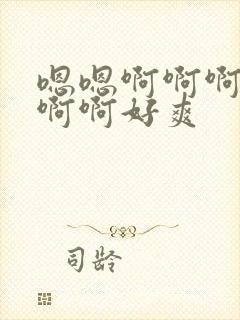 嗯嗯啊啊啊
啊啊好爽
司龄